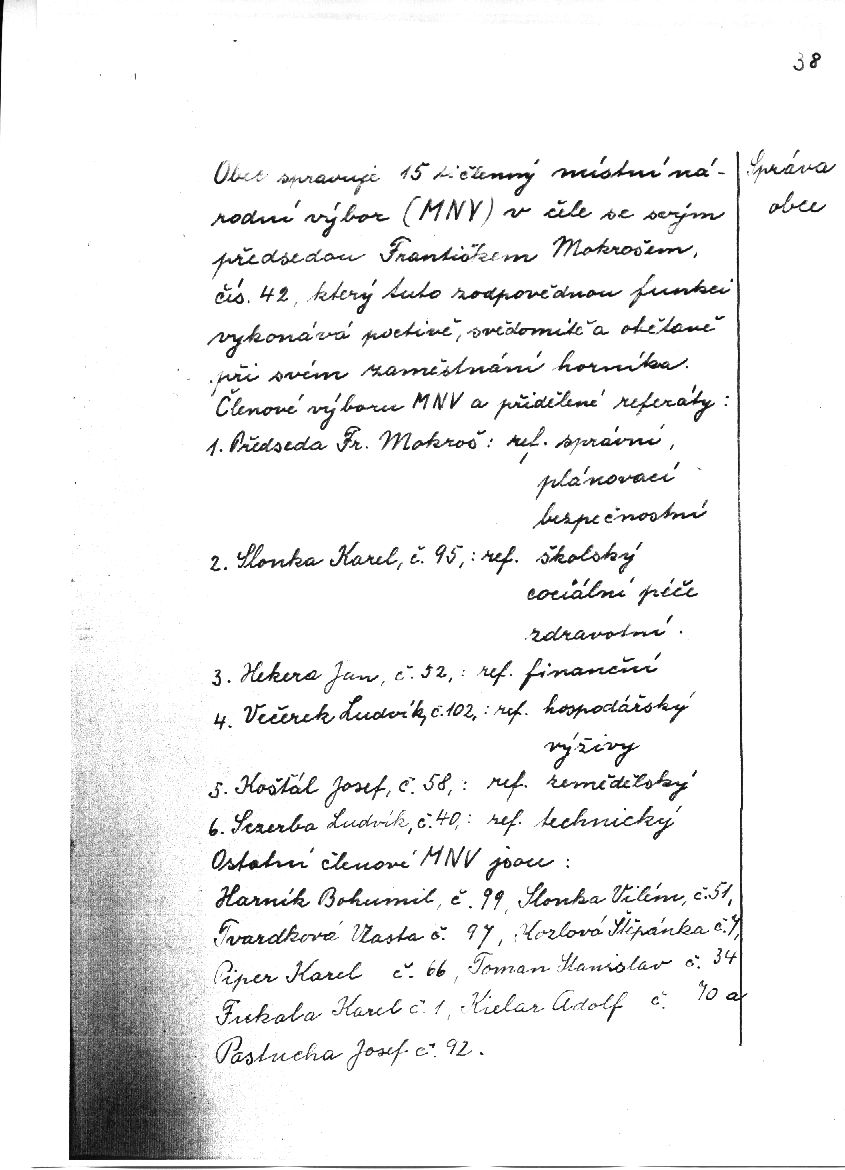 38
Správa
obce
Obec spravuje 15 tičlenný místní ná-
rodní výbor (MNV) v čele se svým
předsedou Františkem Mokrošem,
čís. 42, který tuto zodpovědnou funkci
vykonává poctivě, svědomitě a obětavě
při svém zaměstnání horníka.
Členové výboru MNV a přidělené referáty:
1. Předseda Fr. Mokroš: ref. správní,
plánovací
bezpečnostní
2. Slonka Karel, č. 95,: ref. školský
cociální péče
zdravotní.
3. Hekera Jan, č. 52,: ref. finanční
4. Večerek Ludvík, č. 102,: ref. hospodářský
výživy
5. Koštál Josef, č. 58,: ref. zemědělský
6. Sczerba Ludvík, č. 40,: ref. technický
Ostatní členové MNV jsou:
Harník Bohumil, č. 99, Slonka Vilém, č. 51,
Tvardková Vlasta č. 97, Kozlová Štěpánka č. 7,
Piper Karel č. 66, Toman Stanislav č. 34
Fukala Karel č. 1, Kielar Adolf č. 70 a
Pastucha Josef č. 92.